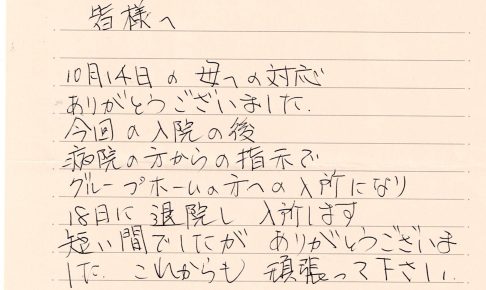 皆様へ
10月14日の母への対応
ありがとうございました.
今回の入院の後
病院の方からの指示で
グループホームの方への入所になり
18日に退院し 入所します
短い間でしたが ありがとうございま
した. これからも 頑張って下さい.